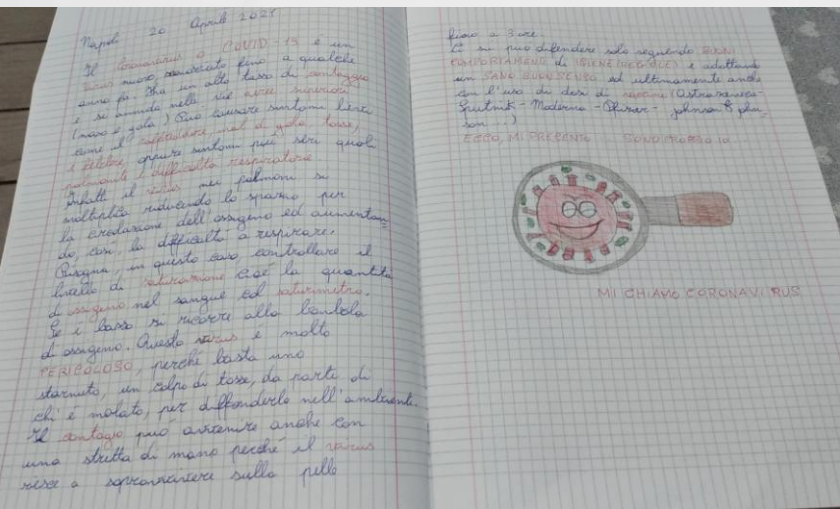 Napoli 20 Aprile 2021
Il Coronavirus o COVID-19 è un
virus nuovo, sconosciuto fino a qualche
anno fa. Ha un alto tasso di contaggio
e si annida nelle vie aeree superiori
(naso e gola) Può causare sintomi lievi
come il raffreddore, mal di gola, tosse,
e febbre, oppure sintomi più seri quali
polmonite, difficoltà respiratorie
Infatti il virus nei polmoni si
moltiplica riducendo lo spazio per
la circolazione dell'ossigeno ed aumentan-
do, così, la difficoltà a respirare.
Bisogna, in questo caso, controllare il
livello di saturazione cioè la quantità
di ossigeno nel sangue col saturimetro.
Se è basso si ricorre alla bombola
di ossigeno. Questo virus è molto
PERICOLOSO, perché basta uno
starnuto, un colpo di tosse, da parte di
chi è malato, per diffonderlo nell'ambiente.
Il contagio può avvenire anche con
una stretta di mano perché il virus
riesce a sopravvivere sulla pelle
fino a 3 ore
Ci si può difendere solo seguendo BUONI
COMPORTAMENTI di IGIENE e adottando
un SANO BUONSENSO ed ultimamente anche
con l'uso di dosi di vaccino (Astrazeneca-
Sputnik-Moderna-Pfizer- johnson & john
son...)
ECCO, MI PRESENTO SONO PROPRIO IO
MI CHIAMO CORONAVIRUS